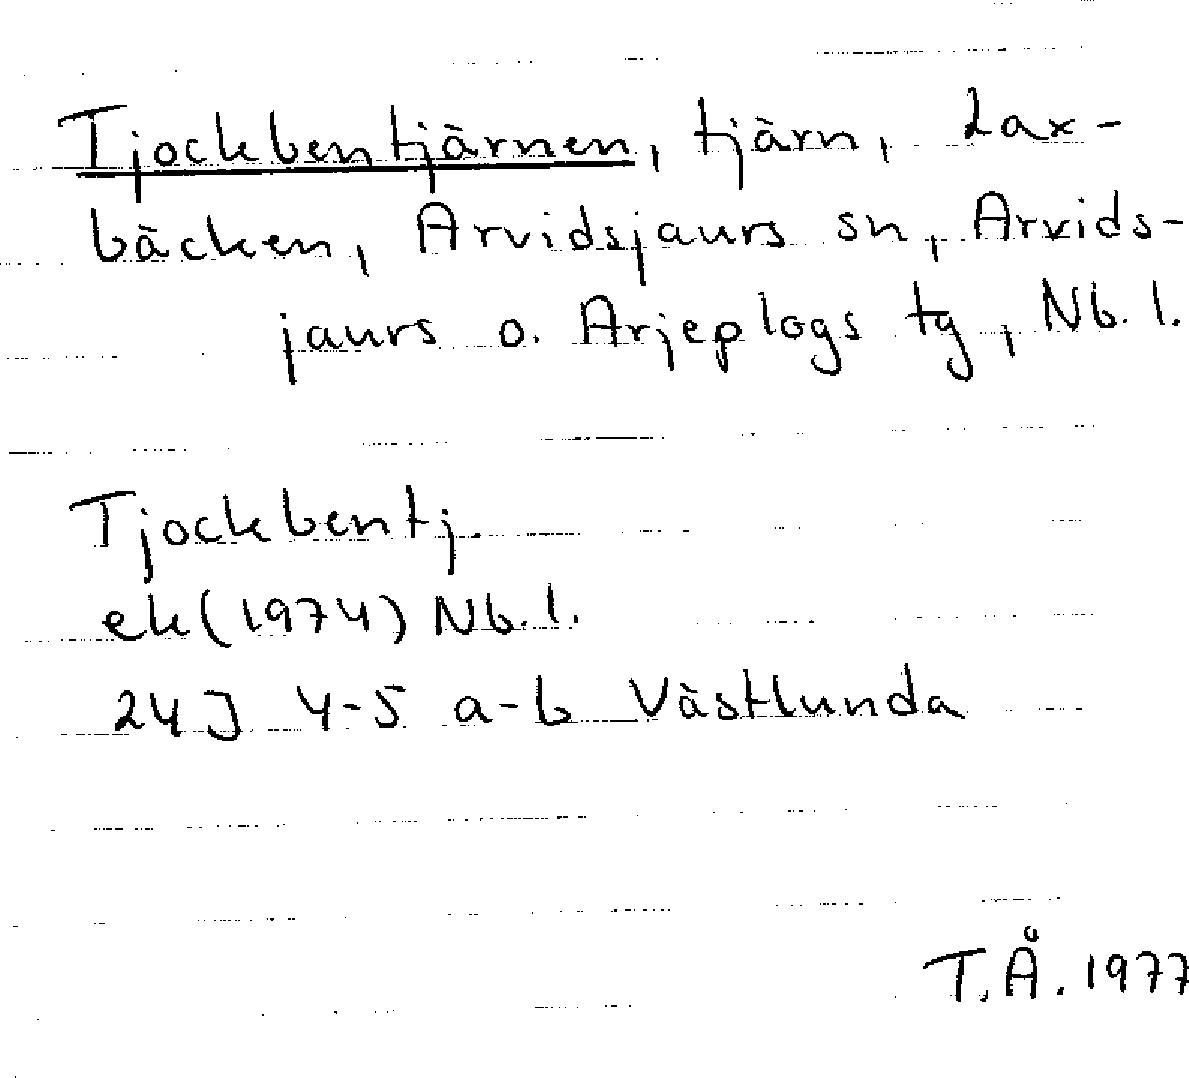 Tjockbentjärnen, tjärn, Lax-
bäcken, Arvidsjaurs sn, Arvids-
jaurs o. Arjeplogs tg, Nb. l.
Tjockbentj
ek (1974) Nb. l.
24J 4-5 a-b Västlunda
T. Å. 1977